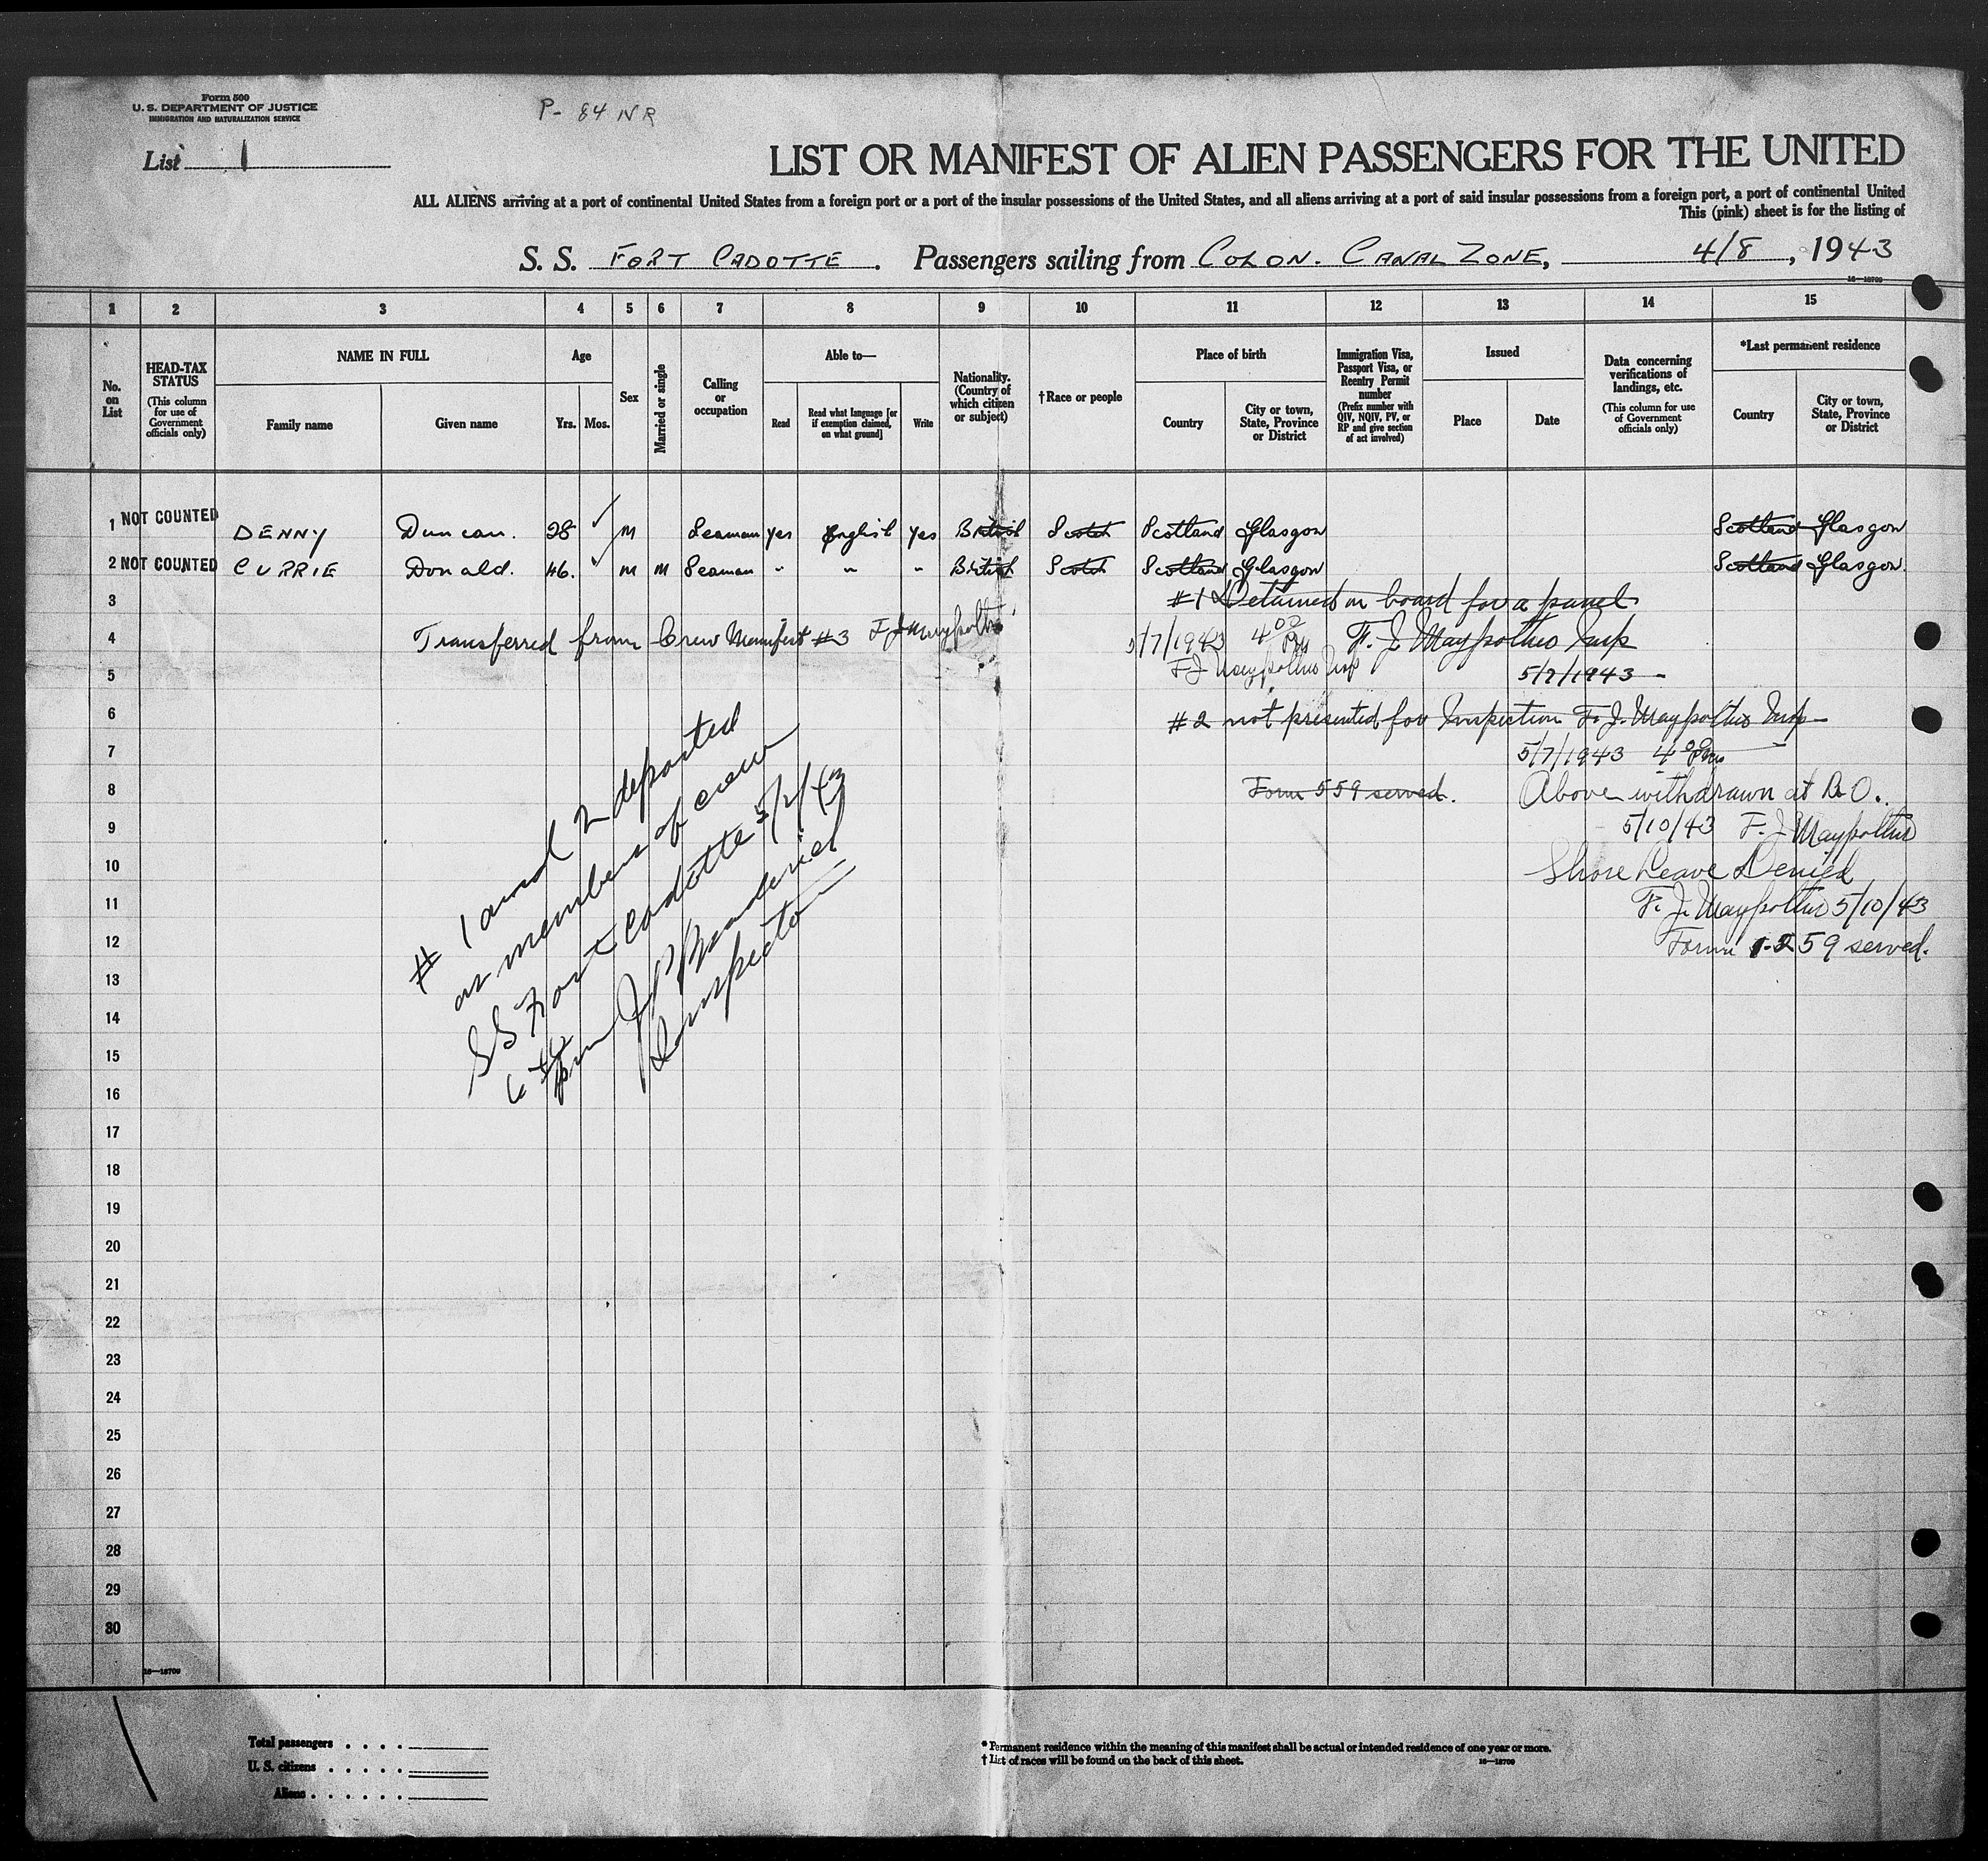 Form 500
U. S. DEPARTMENT OF JUSTICE
IMMIGRATION AND NATURALIZATION SERVICE
P- 84 NR
List 1
LIST OR MANIFEST OF ALIEN PASSENGERS FOR THE UNITED
ALL ALIENS arriving at a port of continental United States from a foreign port or a port of the insular possessions of the United States, and all aliens arriving at a port of said insular possessions from a foreign port, a port of continental United
This (pink) sheet is for the listing of
S. S. FORT CADOTTE . Passengers sailing from COLON. CANAL ZONE, 4/8, 1943
16—18709
1 2 3 4 5 6 7 8 9 10 11 12 13 14 15
No. on List
HEAD-TAX STATUS
(This column for use of Government officials only)
NAME IN FULL
Family name Given name
Age
Yrs. Mos.
Sex
Married or single
Calling or occupation
Able to—
Read Read what language [or if exemption claimed, on what ground] Write
Nationality. (Country of which citizen or subject)
†Race or people
Place of birth
Country City or town, State, Province or District
Immigration Visa, Passport Visa, or Reentry Permit number
(Prefix number with QIV, NQIV, PV, or RP and give section of act involved)
Issued
Place Date
Data concerning verifications of landings, etc.
(This column for use of Government officials only)
*Last permanent residence
Country City or town, State, Province or District
1 NOT COUNTED DENNY Duncan. 28 ✓ M Seaman yes English yes British Scotch Scotland Glasgow Scotland Glasgow
2 NOT COUNTED CURRIE Donald. 46. ✓ M M Seaman " " " British Scotch Scotland Glasgow Scotland Glasgow.
3 #1 Detained on board for a panel
4 Transferred from Crew Manifest #3 F J Maypother 5/7/1943 4 02 Pm F. J. Maypother Insp
5 F J Maypother Insp 5/7/1943 -
6 #2 not presented for Inspection F. J. Maypother Insp-
7 5/7/1943 4 00 Pm
8 Form 559 served. Above withdrawn at B.O.
9 5/10/43 F. J. Maypother
10 Shore Leave Denied
11 F. J. Maypother 5/10/43
12 Form 1-259 served.
# 1 and 2 departed
as members of crew
SS Fort Cadotte
pm
Inspector
13
14
15
16
17
18
19
20
21
22
23
24
25
26
27
28
29
30
16—18709
Total passengers . . . .
U. S. citizens . . . . .
Aliens . . . . . .
* Permanent residence within the meaning of this manifest shall be actual or intended residence of one year or more.
† List of races will be found on the back of this sheet. 16—18709